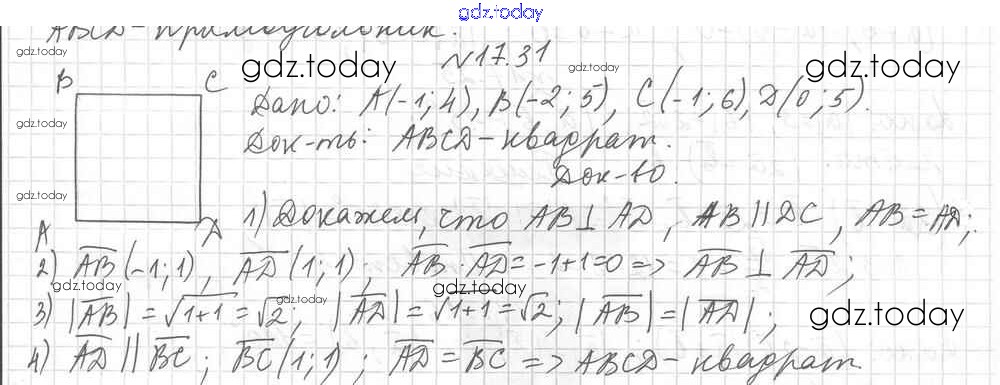 gdz.today
ABCD - прямоугольник.
gdz.today
№17.31
gdz.today gdz.today gdz.today
B C
Дано: A(-1; 4), B(-2; 5), C(-1; 6), D(0; 5).
gdz.today
Док-ть: ABCD - квадрат.
Док-во.
gdz.today
1) Докажем, что AB ⊥ AD, AB || DC, AB = AD;
A D
2) AB(-1; 1), AD(1; 1); AB · AD = -1+1=0 => AB ⊥ AD;
gdz.today gdz.today gdz.today
3) |AB| = √1+1 = √2; |AD| = √1+1 = √2; |AB| = |AD|;
4) AD || BC; BC(1; 1); AD = BC => ABCD - квадрат.